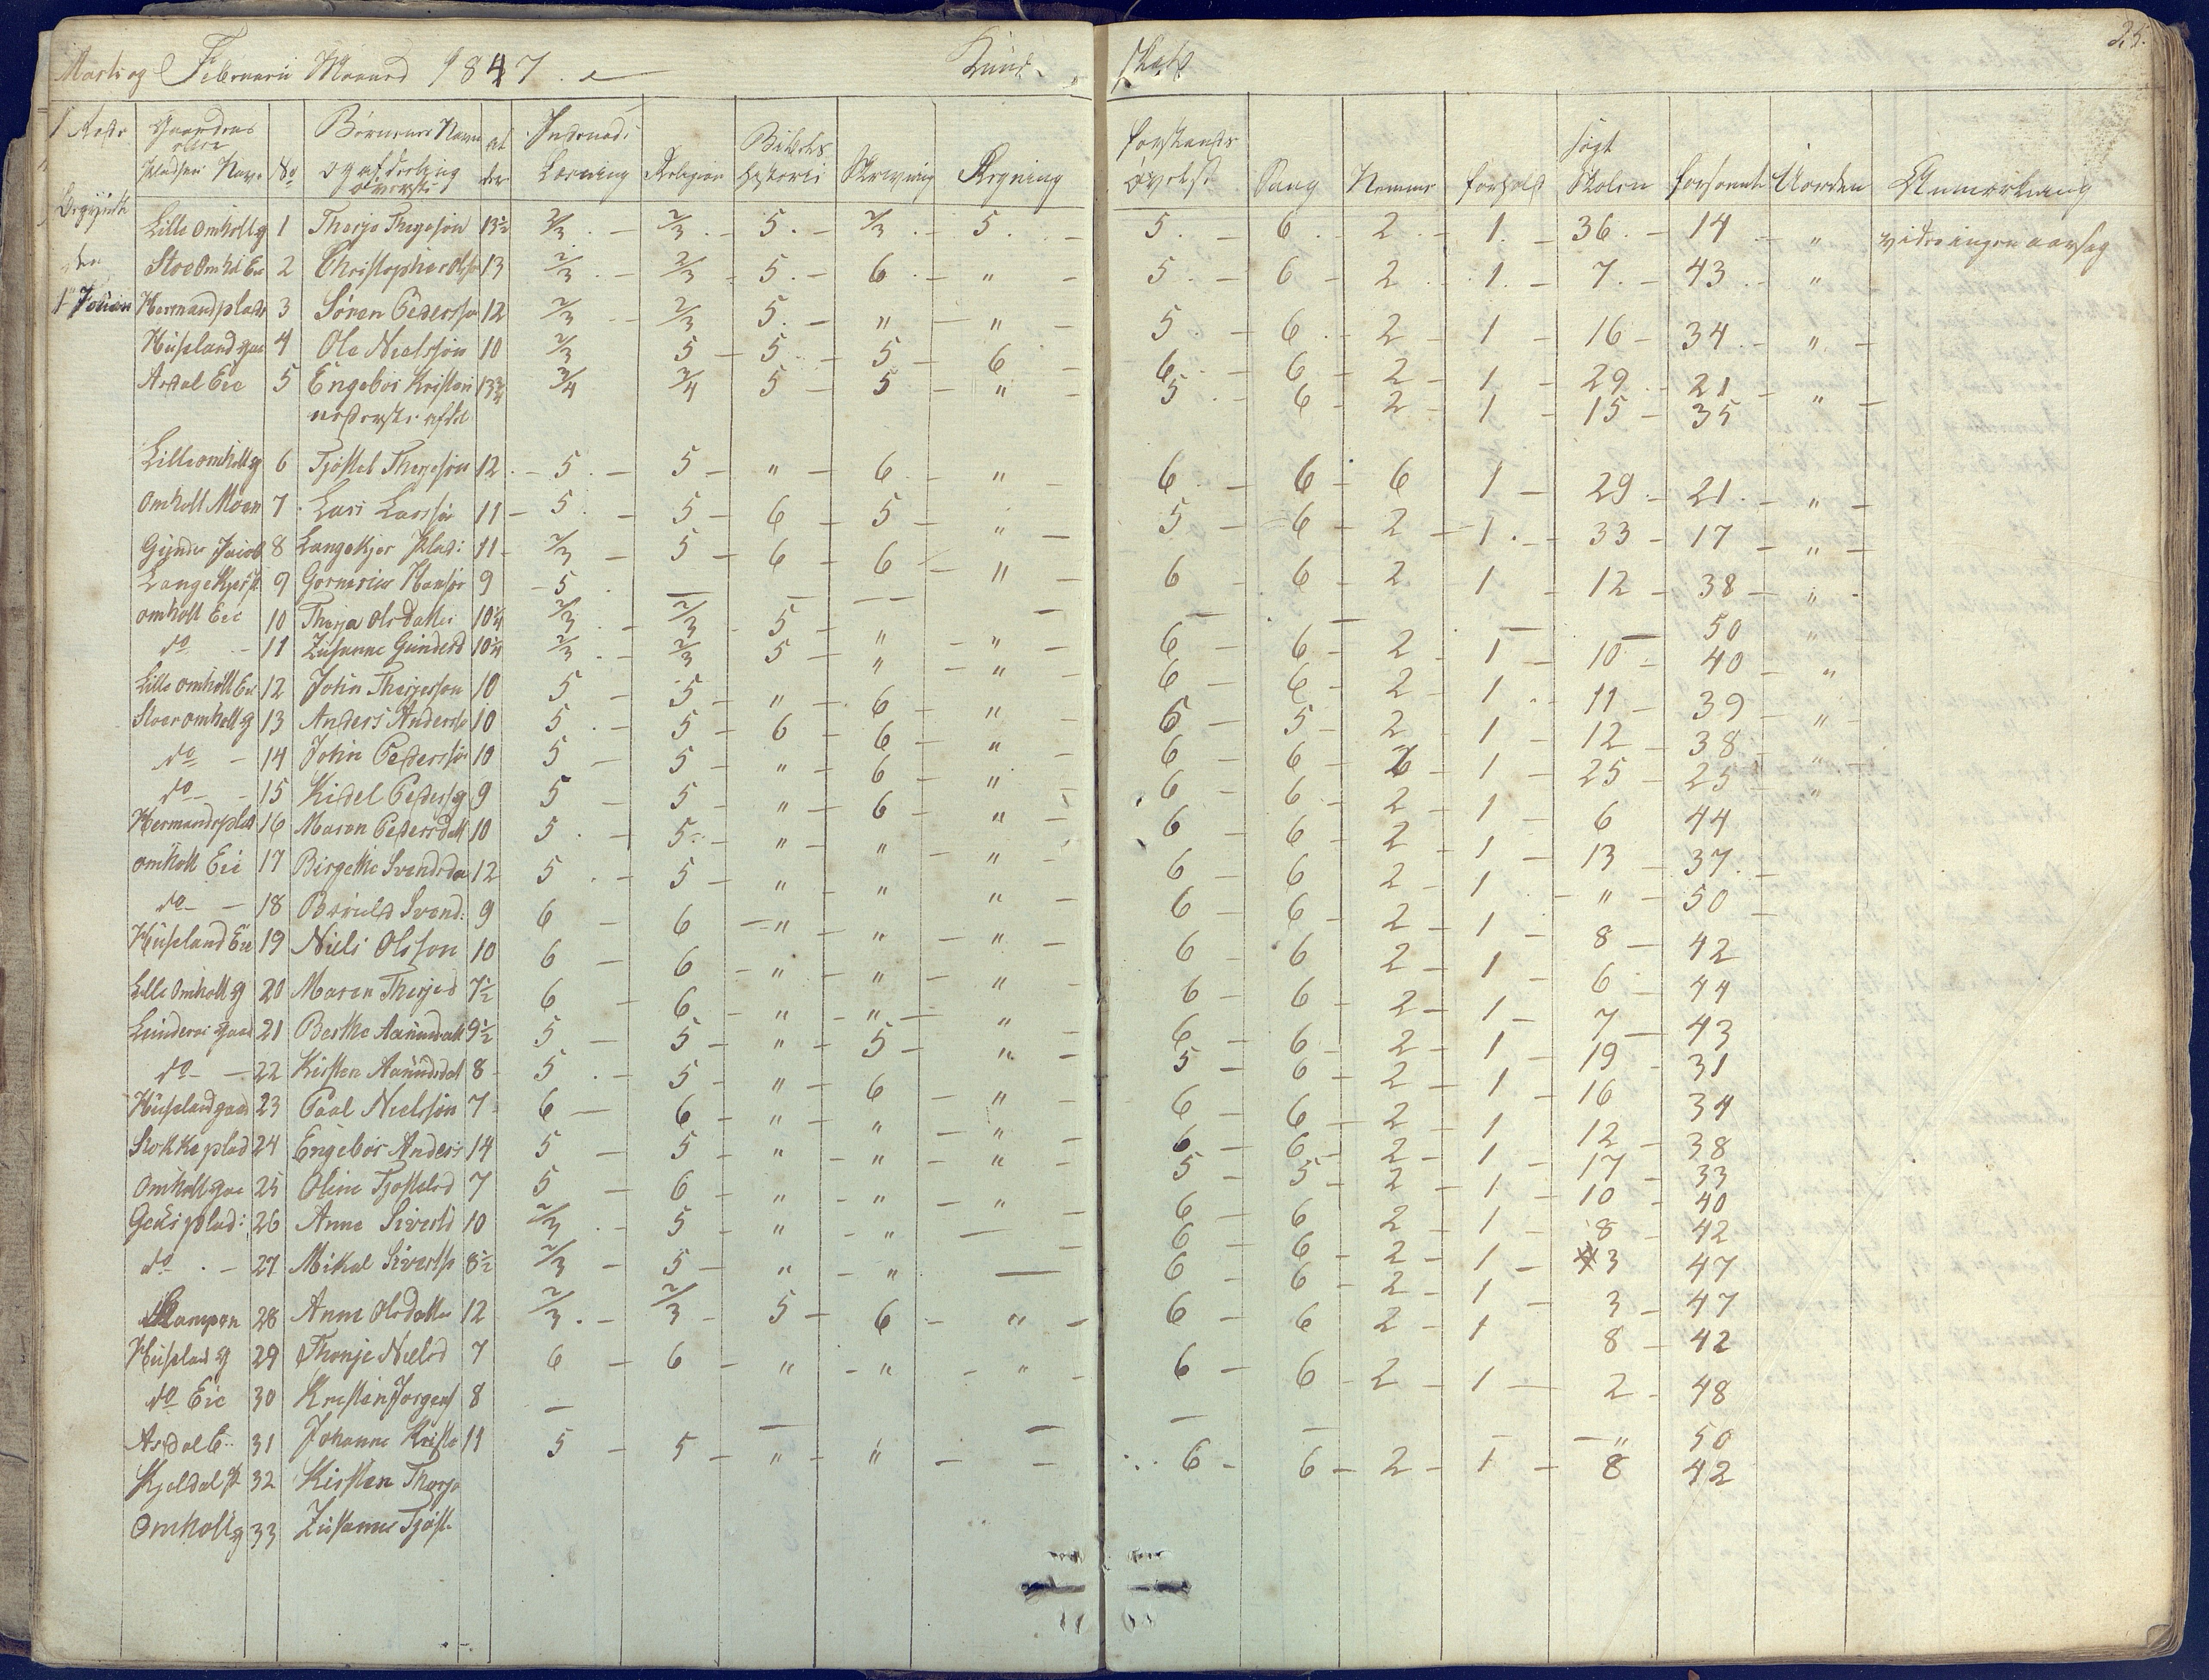 Marts og Februarii Maaned 1847. Kund- skab 25.
Gaardens eller Pladsens Nav. No Børnenes Navn og afdeling øverste al der Indenad: Læsning Religion Bibels Historie Skrivning Regning forstands øvelse Sang Nemme forhold søgt Skolen forsømte Uorden Anmærkning
Lille Omholt g 1 Therje Thergesøn 13½ 2/3 - 2/3 - 5 - 2/3 - 5 - 5 - 6 - 2 - 1 - 36 - 14 - "
den Stoe Omholt Eie 2 Christopher Olss 13 2/3 - 2/3 - 5 - 6 - " 5 - 6 - 2 - 1 - 7 - 43 - "
Hermandplads 3 Søren Pederssø 12 2/3 - 2/3 5 - " - " - 5 - 6 - 2 - 1 - 16 - 34 - " -
Huseland gaa 4 Ole Nielssøn 10 2/3 5 - 5 - 5 - 6 - 6 - 6 - 2 - 1 - 29 - 21 - "
Asdal Eie 5 Engebor Kristen 13¾ 3/4 3/4 5 - 5 - " 5 - 6 - 2 - 1 - 15 - 35
nederste afdel
Lille omholt g 6 Tjøstel Therjesøn 12 - 5 - 5 - " - 6 - " - 6 - 6 - 6 1 - 29 - 21 - " -
Omholt Moen 7 Lars Larssøn 11 - 5 - 5 - 6 - 5 - " 5 - 6 - 2 - 1 - 33 - 17 - " -
Gunder Jacob 8 Langekjer Plads: 11 - 2/3 - 5 - 6 - 6 - " - 6 - 6 - 2 1 - 12 - 38 - "
Langekjer p 9 Gornerius Hansøn 9 - 5 - - - - - - - - - 50 "
omholt Eie 10 Therja Olsdatter 10¼ 2/3 - 2/3 - 5 - " - " - 6 - 6 - 2 1 - 10 - 40 - "
do - 11 Zusanne Gunders 10¼ 2/3 - 2/3 5 - " - " 6 - 6 - 2 - 1 - 11 - 39 - "
Lille omholt Eie 12 John Therjesson 10 5 - 5 - " - 6 - " 6 - 5 - 2 - 1 - 12 - 38 - "
Stoer omholt g 13 Anders Anderssø 10 5 - 5 - 6 - 6 - " 6 - 6 - 2 - 1 - 25 - 25 "
do - 14 John Pederssøn 10 5 - 5 - " - 6 - " 6 - 6 - 2 - 1 - 6 44
do - 15 Kidel Pederss 9 5 - 5 - " - 6 - " - 6 - 6 - 2 - 1 - 13 - 37 -
Hermandsplad 16 Maren Pedersdatt 10 5 - 5 - " - " - " - 6 - 6 2 - 1 - " - 50 -
omholt Eie 17 Birgethe Svendsda 12 5 - 5 - " - " " - 6 - 6 - 2 - 1 - 8 - 42
do - 18 Svend: 9 6 - 6 - " - " - " - 6 - 6 2 - 1 - 6 - 44
Huseland Eie 19 Niels Olsson 10 6 - 6 - " - " - " - 6 - 6 - 2 - 1 - 7 - 43
Lille Omholt g 20 Maren Therjed 7½ 6 - 6 - " - " - " - 6 - 6 - 2 - 1 - 19 - 31
gaar 21 Berthe Aanundatt 9½ 5 - 5 - " - 5 - " - 5 - 6 - 2 - 1 - 16 34
do - 22 Kirsten Aanundsdat 8 - 5 - 5 - " - 6 - " - 6 - 6 - 2 - 1 12 - 38
Huseland gaad 23 Paal Nielssøn 7 6 - 6 - " - " - " - 6 - 6 - 2 - 1 - 17 - 33
Stokke plad 24 Engebor Anders 14 5 - 5 - " - " - " 5 - 5 - 2 - 1 - 10 - 40
Omholt gaa 25 Oline Tjøstelsd 7 5 - 6 - " - " - " - 6 - 6 2 - 1 - 8 - 42
plads: 26 Anne Siverts 10 2/3 - 5 - " - " - 6 - 6 - 2 - 1 - 3 47
do - 27 Mikal Sivertsø 8½ 2/3 - 5 - " - " - 6 - 6 - 2 - 1 - 3 - 47
Kampen 28 Anne Olsdatter 12 2/3 - 2/3 - 5 - 6 - " - 6 - 6 2 - 1 8 - 42
Huseland g 29 Thonje Nielsd 7 6 - 6 - " - " - " - 6 - 6 - 2 - 1 - 2 - 48
do Eie 30 Kristen Jorgens 8 - - - - - - - " 50
Asdal E. 31 Johanne Kristo 11 5 - 5 - " - " - - 6 - 6 - 2 - 1 - 8 42
Kjeldal p 32 Kirsten Therje
Omholt g 33 Zusanne Tjøst.